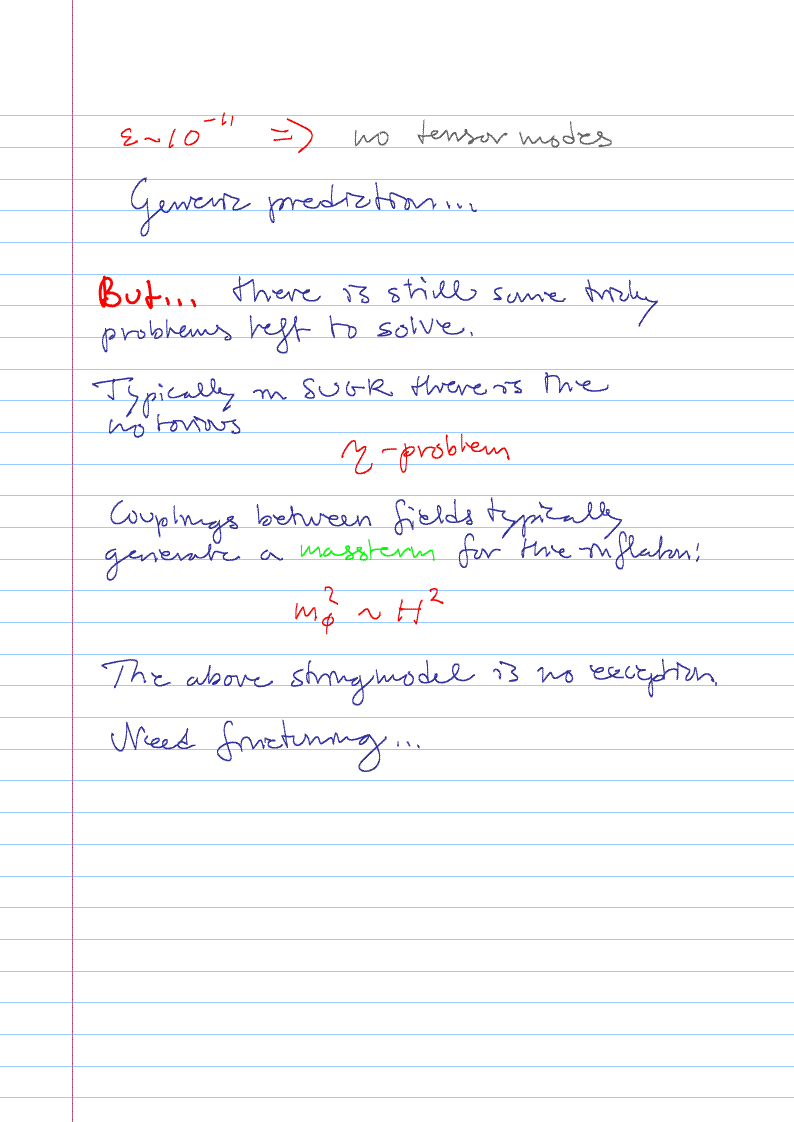 ε ~ 10⁻¹¹ => no tensor modes
Generic prediction...
But... there is still some tricky
problems left to solve.
Typically in SUGR there is the
notorious
η-problem
Couplings between fields typically
generate a massterm for the inflaton:
m_ϕ² ~ H²
The above stringmodel is no exception.
Need finetuning...